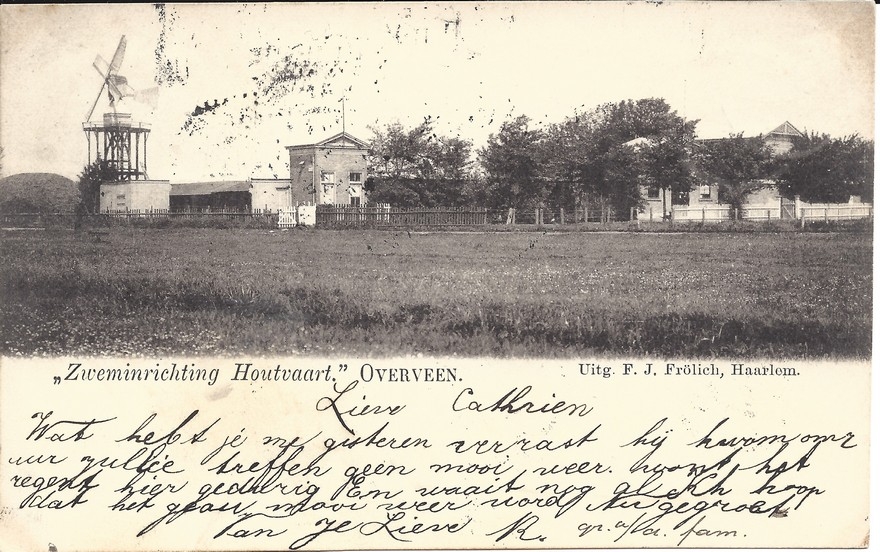 „Zweminrichting Houtvaart.” OVERVEEN.
Uitg. F. J. Frölich, Haarlem.
Lieve Cathrien
Wat hebt je me gisteren verrast hij kwam om 2
uur zullie treffen geen mooi weer. want het
regent hier gedurig En waait nog al Ik hoop
dat het gauw mooi weer word Nu gegroet
Van Je Lieve R. gr. a/a. fam.